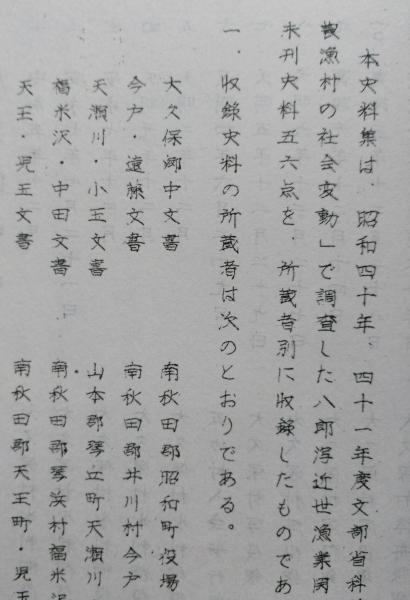 本史料集は、昭和四十年、四十一年度文部省科
農漁村の社会変動」で調査した八郎潟近世漁業関
未刊史料五六点を、所蔵者別に収録したものであ
一、収録史料の所蔵者は次のとおりである。
大久保郷中文書　南秋田郡昭和町役場
今戸・遠藤文書　南秋田郡井川村今戸
天瀬川・小玉文書　山本郡琴丘町天瀬川
福米沢・中田文書　南秋田郡琴浜村福米沢
天王・児玉文書　南秋田郡天王町・児玉